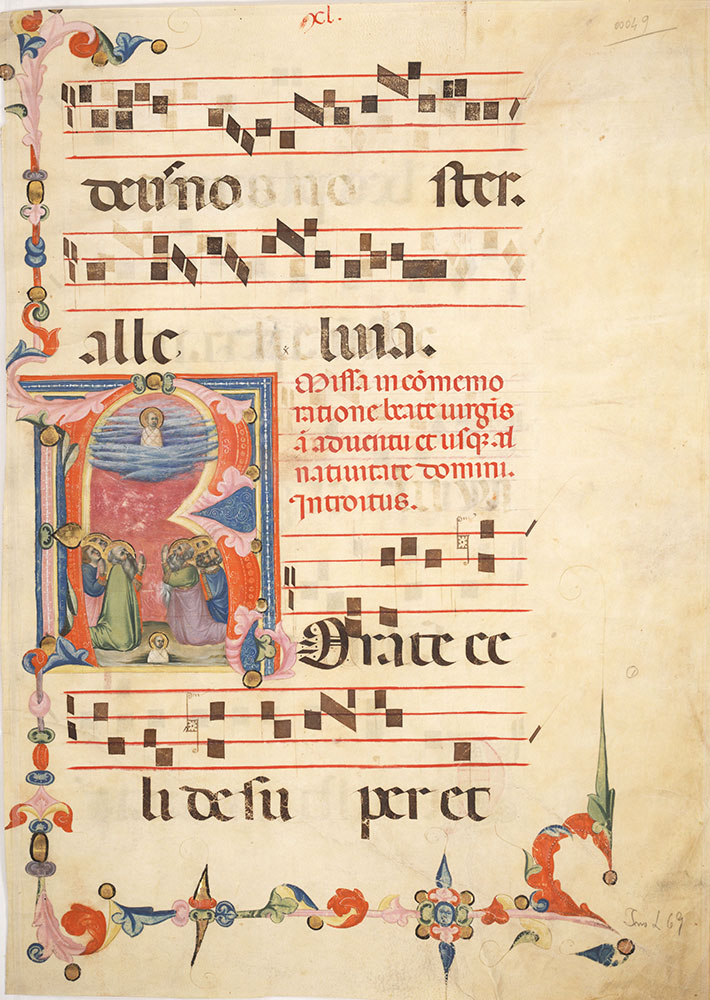 xl.
deus no ster.
alle luia.
Missa in cōmemo
ratione beate uirgīs
ā aduentu et usqꝫ al
natiuitate domini.
Introitus.
ROrate ce
li desu per et